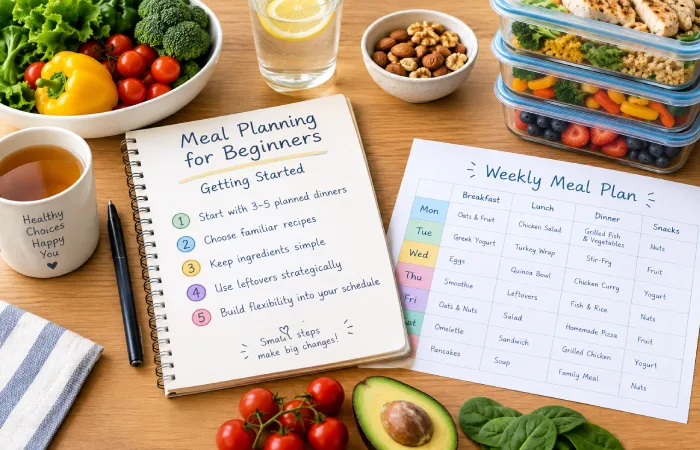 Healthy
Choices
Happy
You
Meal Planning
for Beginners
Getting Started
1 Start with 3–5 planned dinners
2 Choose familiar recipes
3 Keep ingredients simple
4 Use leftovers strategically
5 Build flexibility into your schedule
Small steps
make big changes!
Weekly Meal Plan
Breakfast Lunch Dinner Snacks
Mon Oats & Fruit Chicken Salad Grilled Fish & Vegetables Nuts
Tue Greek Yogurt Turkey Wrap Stir-Fry Fruit
Wed Eggs Quinoa Bowl Chicken Curry Yogurt
Thu Smoothie Leftovers Fish & Rice Nuts
Fri Oats & Nuts Salad Homemade Pizza Fruit
Sat Omelette Sandwich Grilled Chicken Yogurt
Pancakes Soup Family Meal Nuts